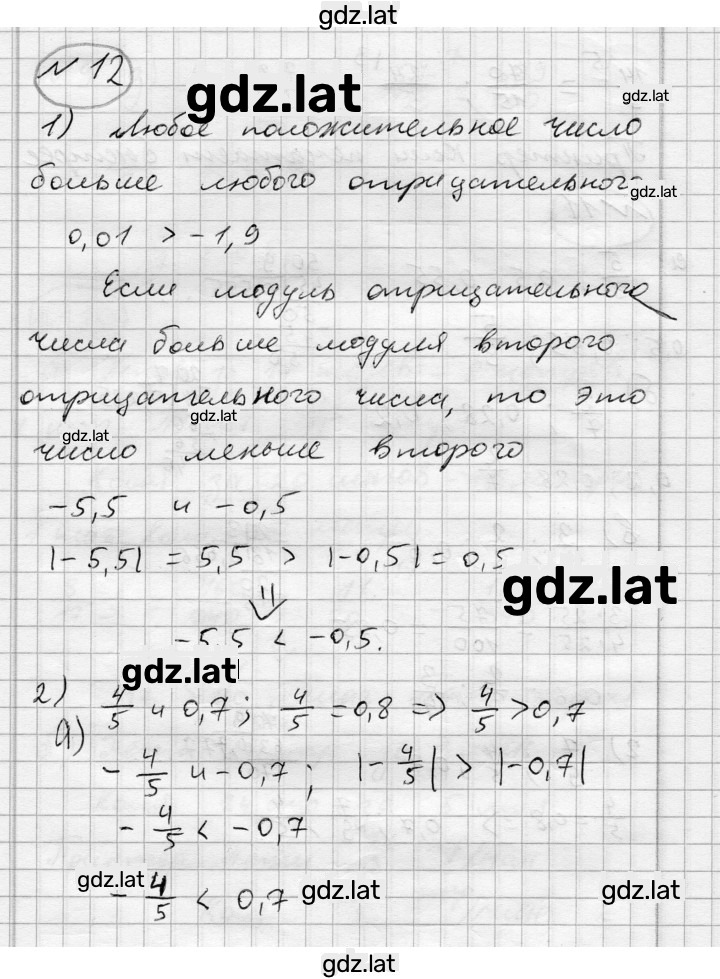 gdz.lat
№ 12
gdz.lat
gdz.lat
1) Любое положительное число
больше любого отрицательног
gdz.lat
0,01 > -1,9
Если модуль отрицательного
числа больше модуля второго
отрицательного числа, то это
gdz.lat
gdz.lat
число меньше второго
-5,5 и -0,5
|-5,5| = 5,5 > |-0,5| = 0,5
gdz.lat
⇓
-5,5 < -0,5.
gdz.lat
2) 4/5 и 0,7; 4/5 = 0,8 => 4/5 > 0,7
а)
- 4/5 и -0,7; |- 4/5| > |-0,7|
- 4/5 < -0,7
gdz.lat
- 4/5 < 0,7
gdz.lat
gdz.lat
gdz.lat